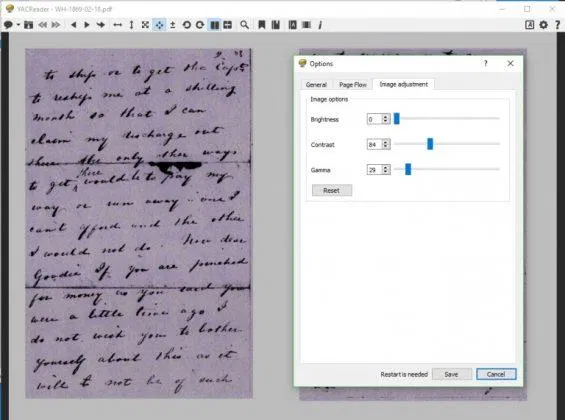 YACReader - WH-1869-02-16.pdf
to ship or to get the Capt
to reship me at a shilling
month so that I can
claim my discharge out
there the only other ways
to get there would be to pay my
way or run away. one I
can't afford and the other
I would not do. Now dear
Goodie If you are pinched
for money as you said you
were a little time ago I
do not wish you to bother
yourself about this as it
will not be of such
Options
General
Page Flow
Image adjustment
Image options
Brightness 0
Contrast 84
Gamma 29
Reset
Restart is needed
Save
Cancel